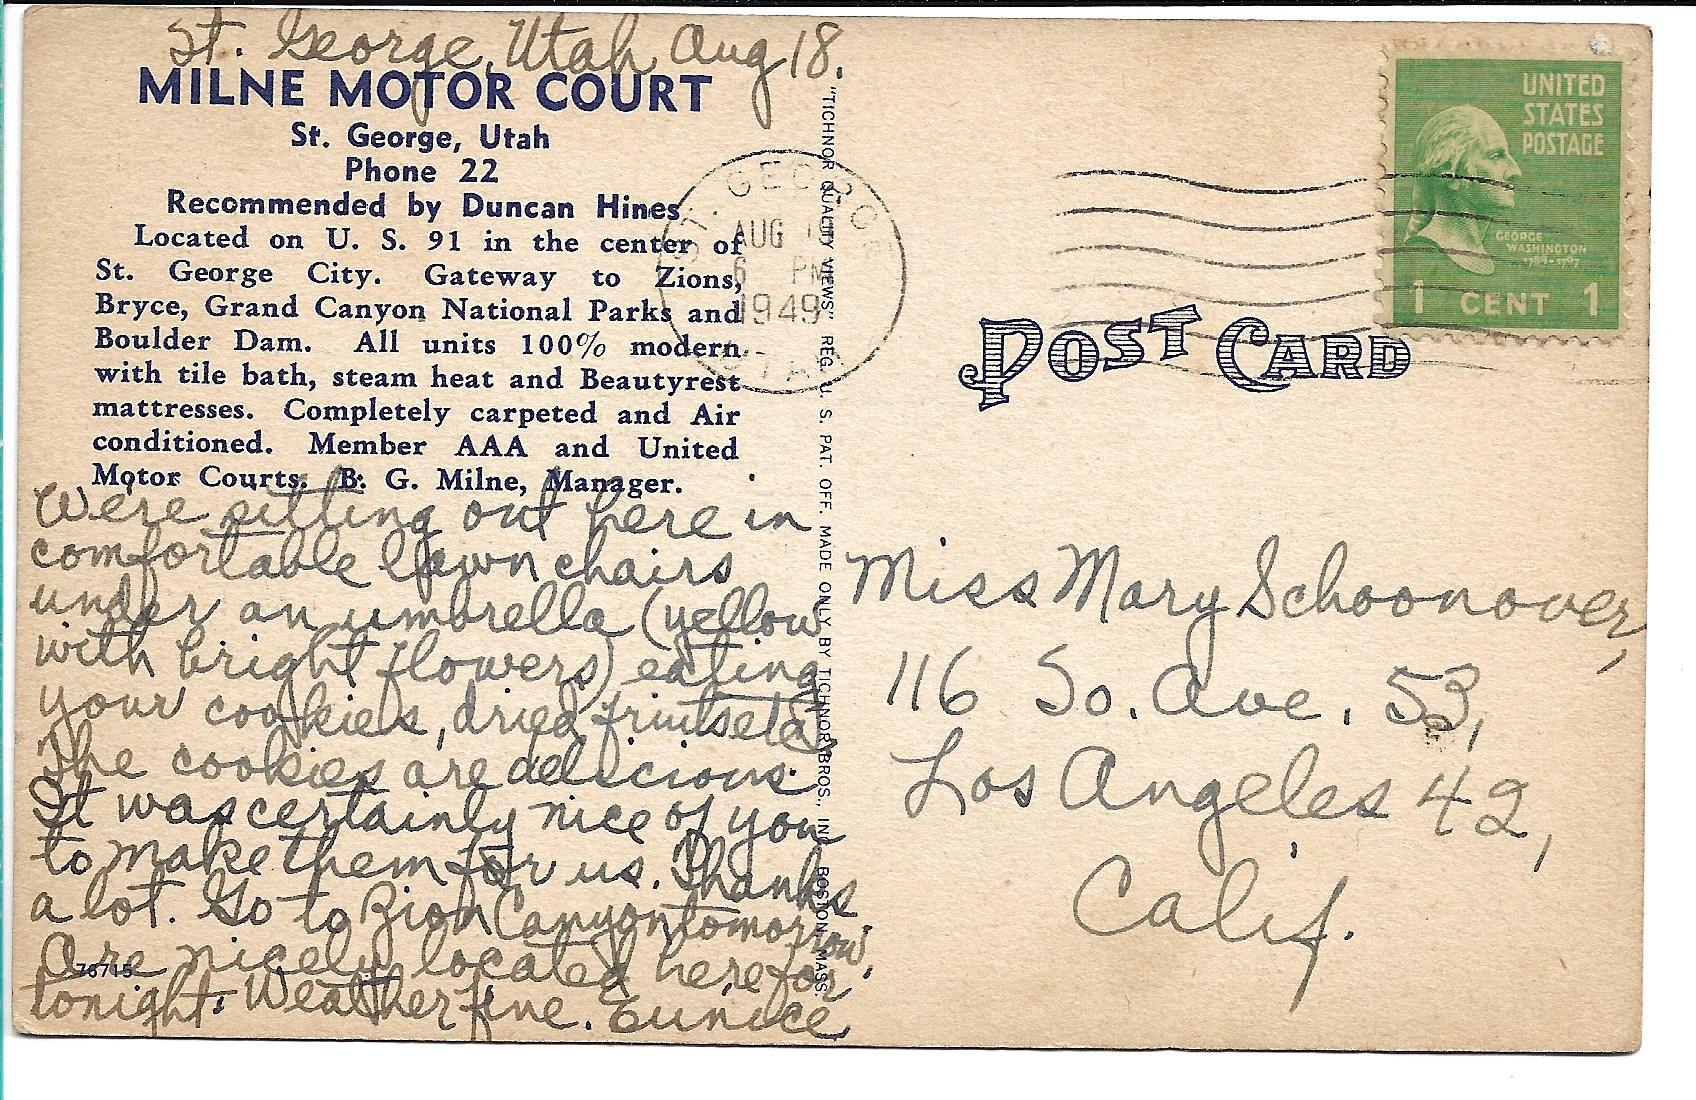 St. George, Utah Aug 18.
MILNE MOTOR COURT
St. George, Utah
Phone 22
Recommended by Duncan Hines
Located on U. S. 91 in the center of
St. George City. Gateway to Zions,
Bryce, Grand Canyon National Parks and
Boulder Dam. All units 100% modern
with tile bath, steam heat and Beautyrest
mattresses. Completely carpeted and Air
conditioned. Member AAA and United
Motor Courts. B. G. Milne, Manager.
We're sitting out here in
comfortable lawn chairs
under an umbrella (yellow
with bright flowers) eating
your cookies, dried fruits etc.
The cookies are delicious.
It was certainly nice of you
to make them for us. Thanks
a lot. Go to Zion Canyon tomorrow.
Are nicely located here for
tonight. Weather fine. Eunice
76715
"TICHNOR QUALITY VIEWS" REG. U. S. PAT. OFF. MADE ONLY BY TICHNOR BROS., INC. BOSTON, MASS.
ST. GEORGE
AUG
6 PM
1949
UTAH
UNITED
STATES
POSTAGE
GEORGE
WASHINGTON
1789-1797
1 CENT 1
POST CARD
Miss Mary Schoonover,
116 So. Ave. 53,
Los Angeles 42,
Calif.